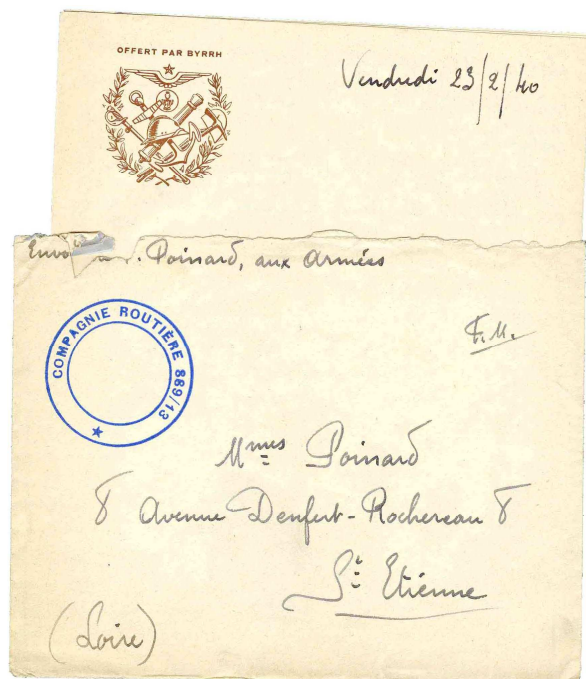 OFFERT PAR BYRRH
Vendredi 23/2/40
Poinard, aux Armées
COMPAGNIE ROUTIÈRE 889/13
F.M.
Mmes Poinard
8 Avenue Denfert-Rochereau 8
St Etienne
(Loire)